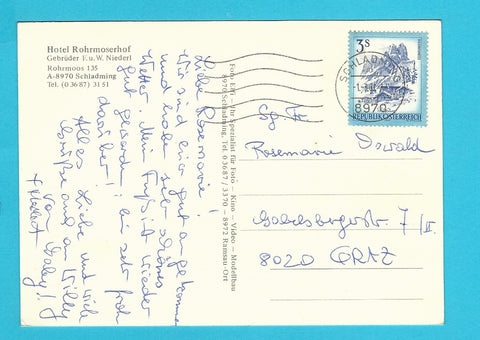 Hotel Rohrmoserhof
Gebrüder F. u. W. Niederl
Rohrmoos 135
A-8970 Schladming
Tel. (0 36 87) 31 51
Liebe Rosemarie!
Wir sind hier gut angekommen
und haben sehr schönes
Wetter. Mein Fuß ist wieder
gut geworden, bin sehr froh
darüber!
Alles Liebe und viele
Grüße auch an Willy
von Gaby!
+ Herbert
Foto - Ihr Spezialist für Foto – Kino – Video – Modellbau
8970 Schladming, Tel. 0 36 87 / 3370 – 8972 Ramsau-Ort
3S
REPUBLIK ÖSTERREICH
SCHLADMING
8970
Sg. Fr.
Rosemarie Oswald
Gabelsbergerstr. 7/II
8020 GRAZ